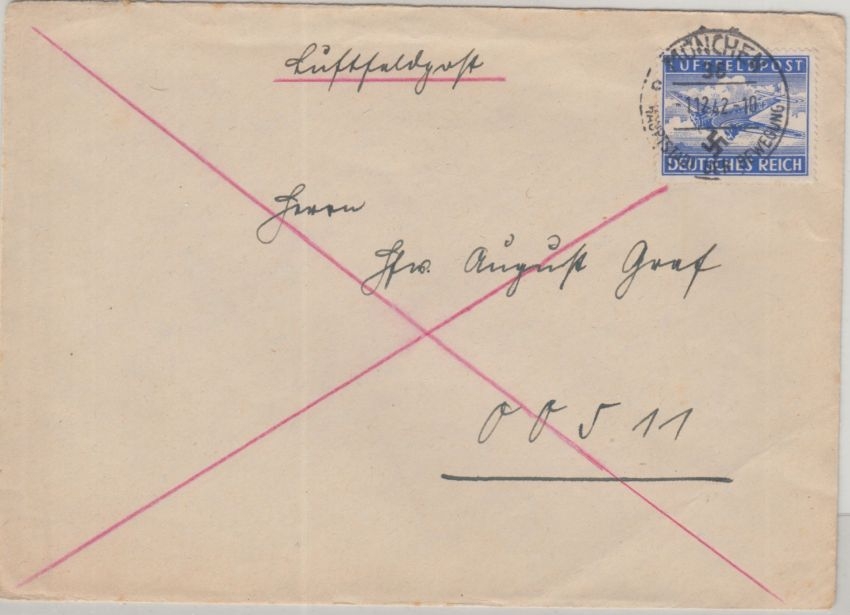 Luftfeldpost
MÜNCHEN
38
1.12.42.-10
HAUPTSTADT DER BEWEGUNG
LUFTFELDPOST
DEUTSCHES REICH
Herrn
Hfw. August Graf
00511